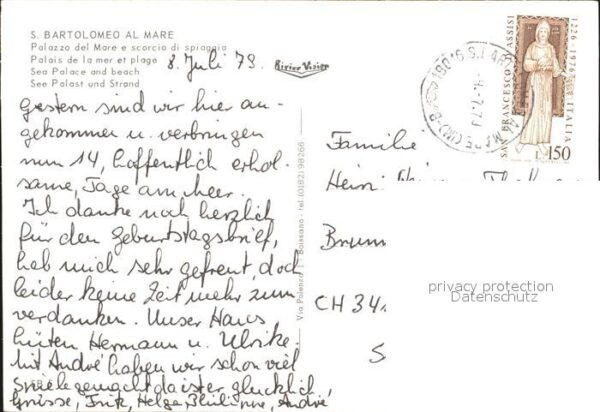 S. BARTOLOMEO AL MARE
Palazzo del Mare e scorcio di spiaggia
Palais de la mer et plage
Sea Palace and beach
See Palast und Strand
8. Juli 78.
River Visier
Gestern sind wir hier an-
gekommen u. verbringen
nun 14, hoffentlich erhol-
same, Tage am Meer.
Ich danke noch herzlich
für den Geburtstagsbrief,
hab mich sehr gefreut, doch
leider keine Zeit mehr zum
verdanken. Unser Haus
hüten Hermann u. Ulrike.
Mit André haben wir schon viel
Spiele gemacht da ist er glücklich,
Grüsse, Fritz, Helga, André
Via Polenza - Boissano - tel. (0182) 98266
18016 S.
SAN FRANCESCO D'ASSISI
1226-1976
ITALIA
L.150
Familie
Brunn
CH 34
S
privacy protection
Datenschutz